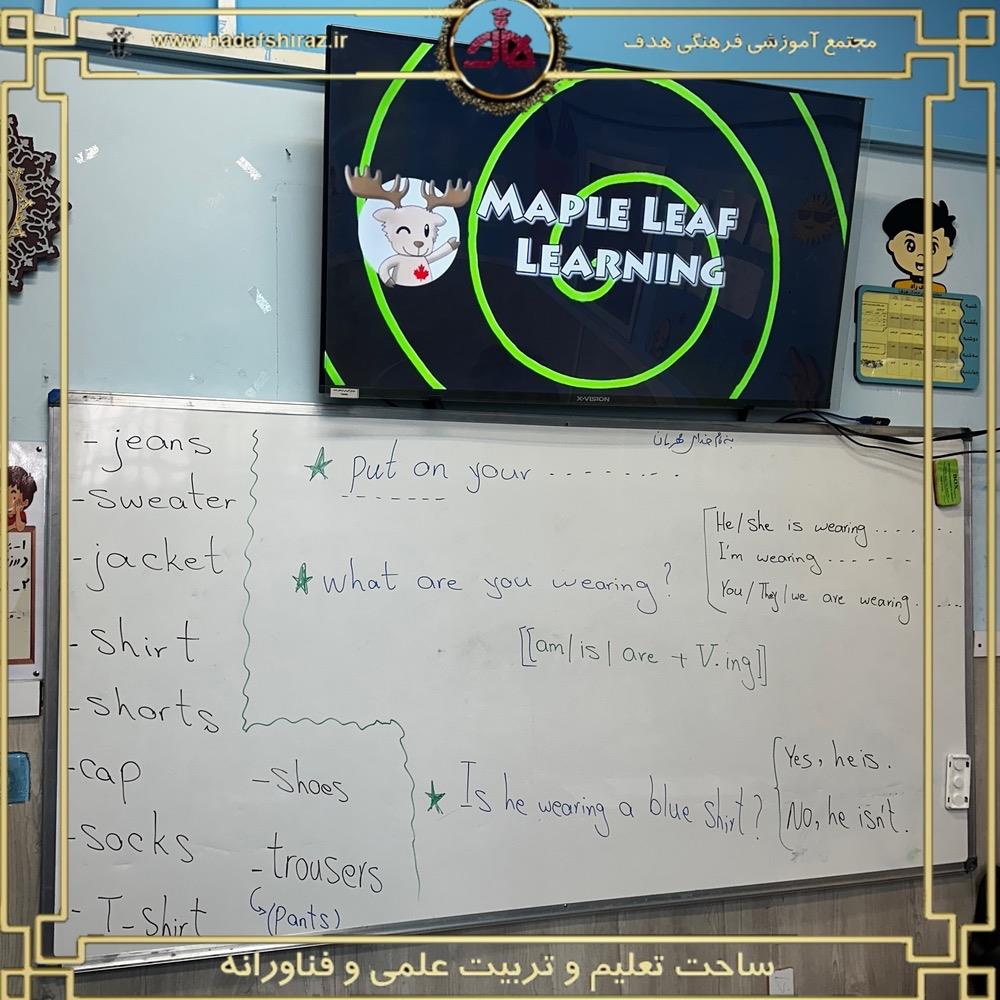 www.hadafshiraz.ir
مجتمع آموزشی فرهنگی هدف
MAPLE LEAF
LEARNING
X-VISION
شنبه
یکشنبه
دوشنبه
سه‌شنبه
چهارشنبه
- jeans
- sweater
- jacket
- shirt
- shorts
- cap
- socks
- T-shirt
- shoes
- trousers
(pants)
به نام خدای مهربان
put on your ---------
what are you wearing?
He/she is wearing .......
I'm wearing -------
You/They/we are wearing.......
[[am/is/are + V.ing]]
Is he wearing a blue shirt?
Yes, he is.
No, he isn't.
ساحت تعلیم و تربیت علمی و فناورانه